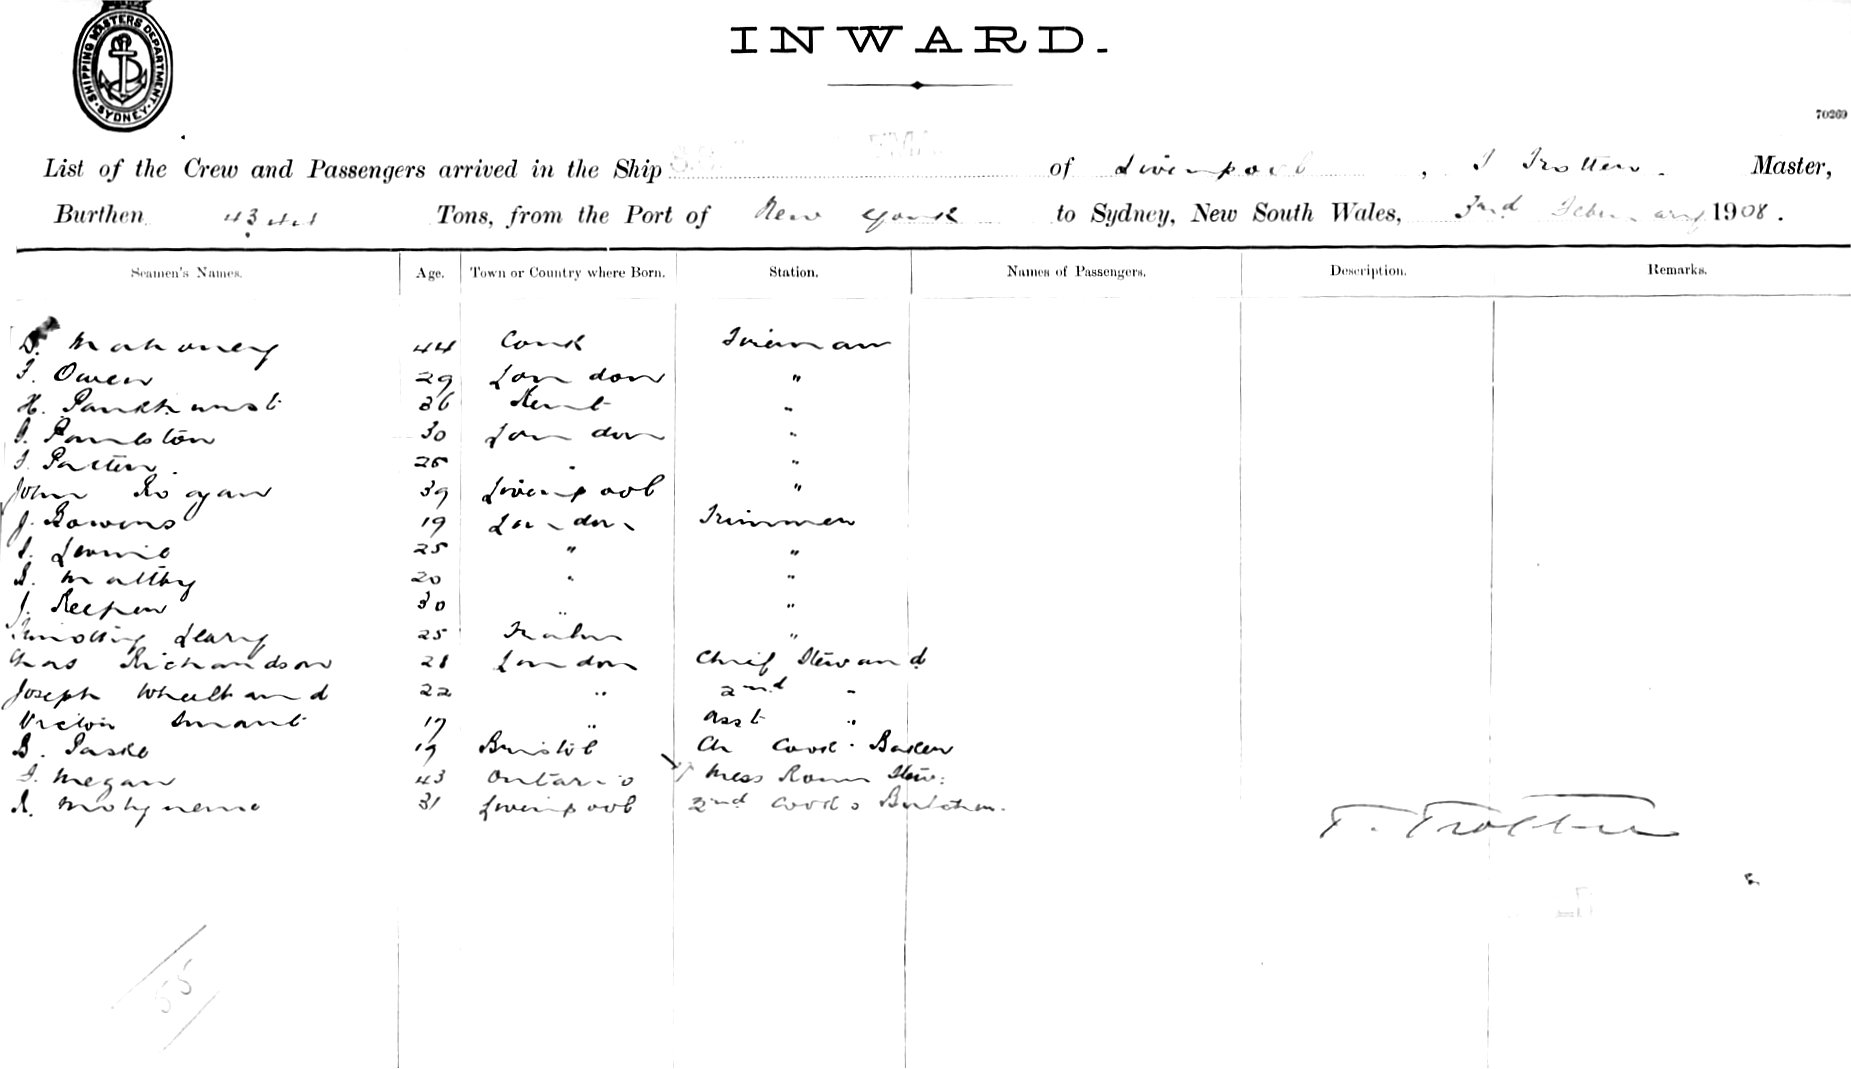 SHIPPING MASTERS DEPARTMENT. SYDNEY
INWARD.
70269
List of the Crew and Passengers arrived in the Ship of Liverpool, T Trotter. Master,
Burthen Tons, from the Port of New York to Sydney, New South Wales, 3rd February 1908.
Seamen's Names. Age. Town or Country where Born. Station. Names of Passengers. Description. Remarks.
D. Mahoney 44 Cork Fireman
F. Owen 29 London "
H. Pankhurst 36 Kent "
30 London "
"
John 39 Liverpool "
J. 19 London Trimmer
25 " "
Maltby 20 " "
J. 30 " "
Timothy Leary 25 "
Chas Richardson London Chief Steward
Joseph 22 " 2nd "
Victor Smart " Asst "
19 Bristol Cook Baker
Megan 43 Ontario Mess Room Stew:
R. 31 Liverpool 2nd Cook & Butcher.
T. Trotter
55